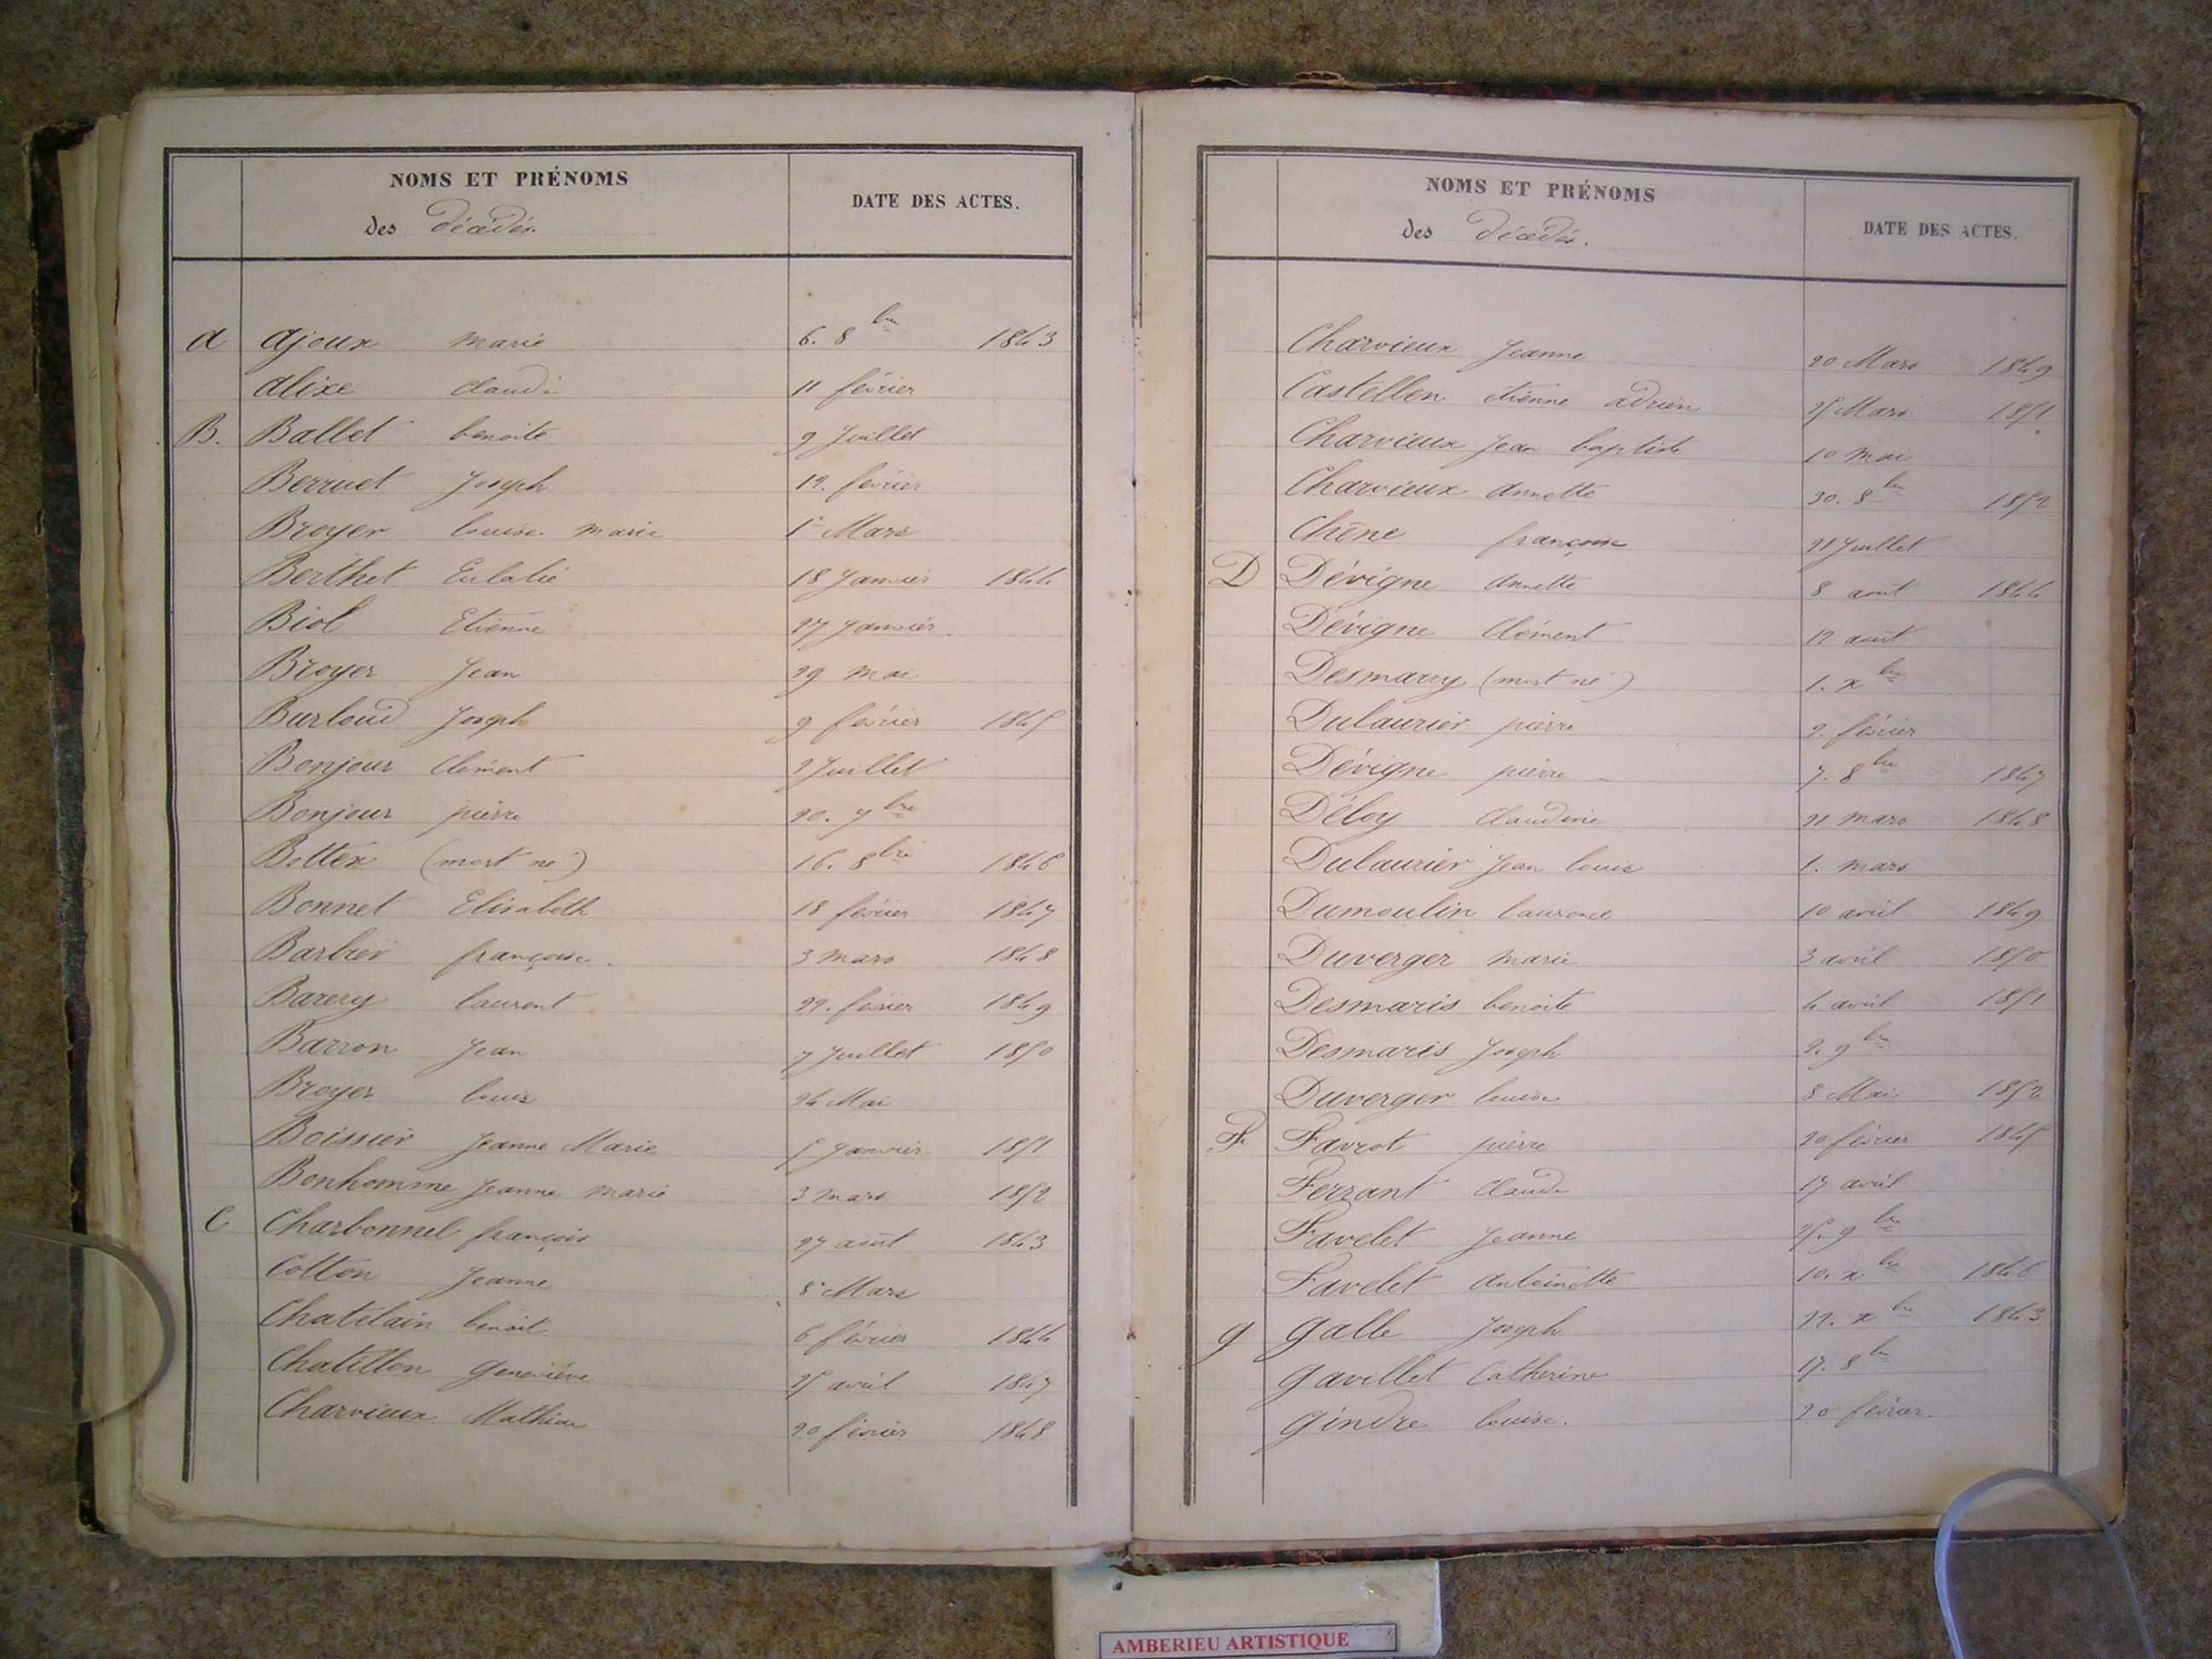 NOMS ET PRÉNOMS
des Décédés.
DATE DES ACTES.
A Ajoux Marie 6. 8bre 1843
Alixe Claude 11 février
B. Ballet benoite 9 Juillet
Berruet Joseph 12. février
Broyer Louise Marie 1er Mars
Berthet Eulalie 18 Janvier 1844
Biol Etienne 27 Janvier.
Broyer Jean 29 mai
Burloud Joseph 9 février 1845
Bonjour Clément 2 Juillet
Bonjour pierre 20. 7bre
Bottex (mort né) 16. 8bre 1846
Bonnet Elisabeth 18 février 1847
Barbier françoise. 3 mars 1848
Barery laurent 22. février 1849
Barron Jean 7 Juillet 1850
Broyer louis 24 Mai
Boissier Jeanne Marie 5 Janvier 1851
Bonhomme Jeanne Marie 3 mars 1852
C Charbonnel françois 27 août 1843
Cotton Jeanne 8 Mars
Chatelain benoit 6 février 1844
Chatillon Geneviève 25 avril 1847
Charvieux Mathieu 20 février 1848
NOMS ET PRÉNOMS
des Décédés.
DATE DES ACTES.
Charvieux Jeanne 20 Mars 1849
Castellen étienne adrien 25 Mars 1851
Charvieux Jean baptiste 10 mai
Charvieux Annette 30. 8bre 1852
Chêne 21 Juillet
D Dévigne Annette 8 aout 1844
Dévigne Clément 12 août
Desmarry (mort né) 1. xbre
Dulaurier pierre 2. février
Dévigne pierre 7. 8bre 1847
Déloy Claudine 21 mars 1848
Dulaurier Jean louis 1. mars
Dumoulin laurence 10 avril 1849
Duverger Marie 3 avril 1850
Desmaris benoite 4 avril 1851
Desmaris Joseph 2. 9bre
Duverger louise 8 Mai 1852
F Favrot pierre 20 février 1845
Ferrant Claude 17 avril
Favelet Jeanne 25. 9bre
Favelet Antoinette 10. xbre 1846
G Galle Joseph 22. xbre 1843
Gavillet Catherine 17. 8bre
Gindre louise. 20 février.
AMBERIEU ARTISTIQUE